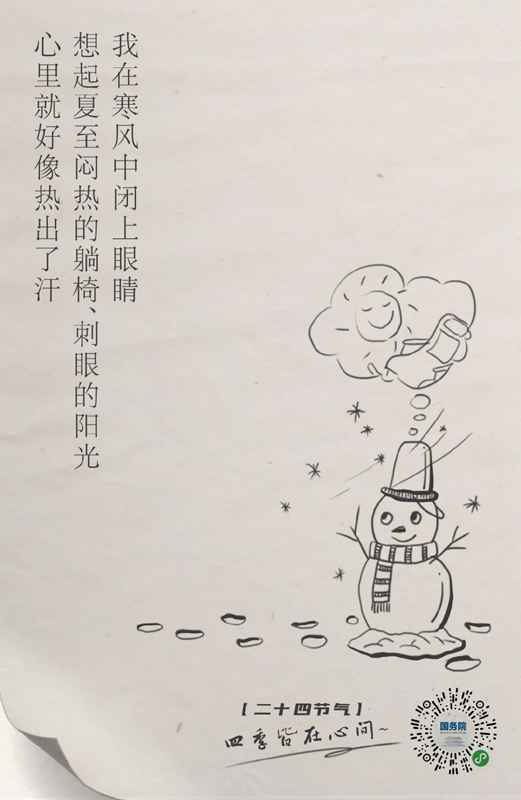 我在寒风中闭上眼睛
想起夏至闷热的躺椅、刺眼的阳光
心里就好像热出了汗
【二十四节气】
四季皆在心间~
国务院